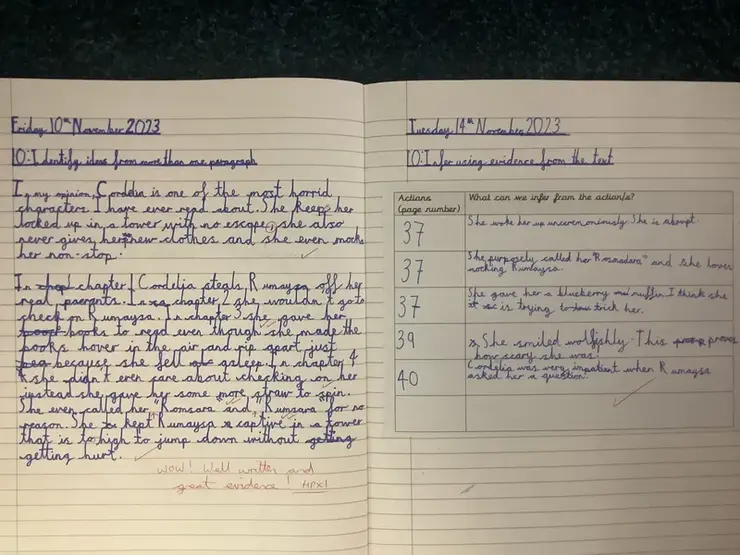 Friday 10th November 2023
LO: Identify ideas from more than one paragraph
In my opinion, Cordelia is one of the most horrid
characters I have ever read about. She keep her
locked up in a tower with no escape, she also
never gives her new clothes and she even mocks
her non-stop.
In chapter 1 Cordelia steals Rumaysa off her
real parents. In chapter 2 she wouldn't go to
check on Rumaysa. In chapter 3 she gave her
books to read even though she made the
books hover in the air and rip apart just
because she fell asleep. In chapter 4
she didn't even care about checking on her
instead she gave her some more straw to spin.
She even called her "Romsara" and "Rumsara" for no
reason. She kept Rumaysa captive in a tower
that is to high to jump down without getting
getting hurt.
WOW! Well written and
great evidence! HPx1
Tuesday 14th November 2023
LO: Infer using evidence from the text
Actions (page number) What can we infer from the action/s?
37 She woke her up unceremoniously. She is abrupt.
37 She purposely called her "Romadara" and she loves
nothing Rumaysa.
37 She gave her a blueberry muffin. I think she
is trying to trick her.
39 She smiled wolfishly. This proves
how scary she was.
40 Cordelia was very impatient when Rumaysa
asked her a question.